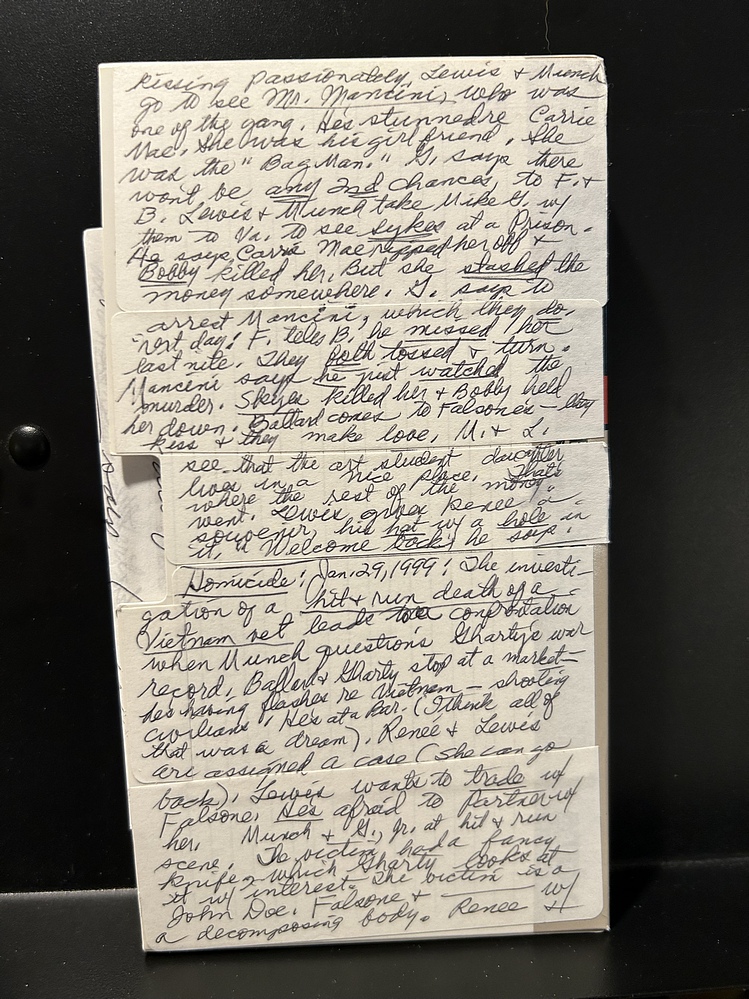 kissing passionately, Lewis & Munch
go to see Mr. Mancini, who was
one of the gang. He's stunned re Carrie
Mae. She was his girlfriend. She
was the "Bag Man." G. says there
wont be any 2nd chances, to F. &
B. Lewis & Munch take Mike G. w/
them to Va. to see Sykes at a Prison.
He says Carrie Mae ripped her off &
Bobby killed her. But she stashed the
money somewhere. G. says to
arrest Mancini, which they do,
next day. F. tells B. he missed her
last nite. They both tossed & turn.
Mancini says he just watched the
murder. Skyes killed her & Bobby held
her down. Ballard comes to Falsones – they
kiss & they make love. M. & L.
see that the art student daughter
lives in a nice place. That's
where the rest of the money
went. Lewis gives Renee a
souvenir, his hat w/ a hole in
it. "Welcome back," he says.
Homicide: Jan. 29, 1999: The investi-
gation of a hit & run death of a
Vietnam vet leads to a confrontation
when Munch questions Gharty's war
record. Ballard & Gharty stop at a market –
he's having flashes re Vietnam – shooting
civilians. He's at a Bar. (I think all of
that was a dream). Renée & Lewis
are assigned a case (she can go
back). Lewis wants to trade w/
Falsone. He's afraid to Partner w/
her. Munch & G., Jr. at hit & run
scene. The victim had a fancy
knife – which Gharty looks at
it w/ interest. The victim is a
John Doe. Falsone & ______ w/
a decomposing body. Renee &